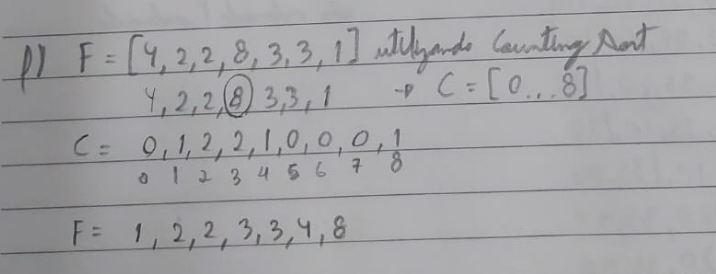 f) F = [4, 2, 2, 8, 3, 3, 1] utilizando Counting Sort
4, 2, 2, 8 3, 3, 1 → C = [0...8]
C = 0, 1, 2, 2, 1, 0, 0, 0, 1
0 1 2 3 4 5 6 7 8
F = 1, 2, 2, 3, 3, 4, 8